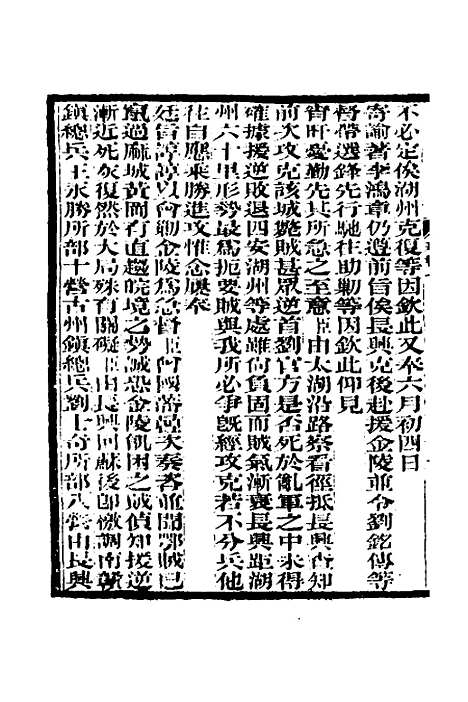 不必定俟湖州克復等因欽此又奉六月初四日
寄諭著李鴻章仍遵前旨俟長興克後赴援金陵並令劉銘傳等
督帶選鋒先行馳往助勦等因欽此仰見
宵旰憂勤先其所急之至意臣由太湖沿路察看徑抵長興查知
前次攻克該城斃賊甚眾逆首劉官方是否死於亂軍之中未得
確據援逆敗退四安湖州等處雖尚負固而賊氣漸衰長興距湖
州六十里形勢最為扼要賊與我所必爭既經攻克若不分兵他
往自應乘勝進攻惟念屢奉
廷旨諄諄以會勦金陵為急督臣曾國藩疊次奏咨並聞鄂賊已
竄過麻城黃岡有直趨皖境之勢誠恐金陵飢困之賊偵知援逆
漸近死灰復然於大局殊有關礙臣由長興回蘇後即檄調南
鎮總兵王永勝所部十營古州鎮總兵劉士奇所部八營由長興